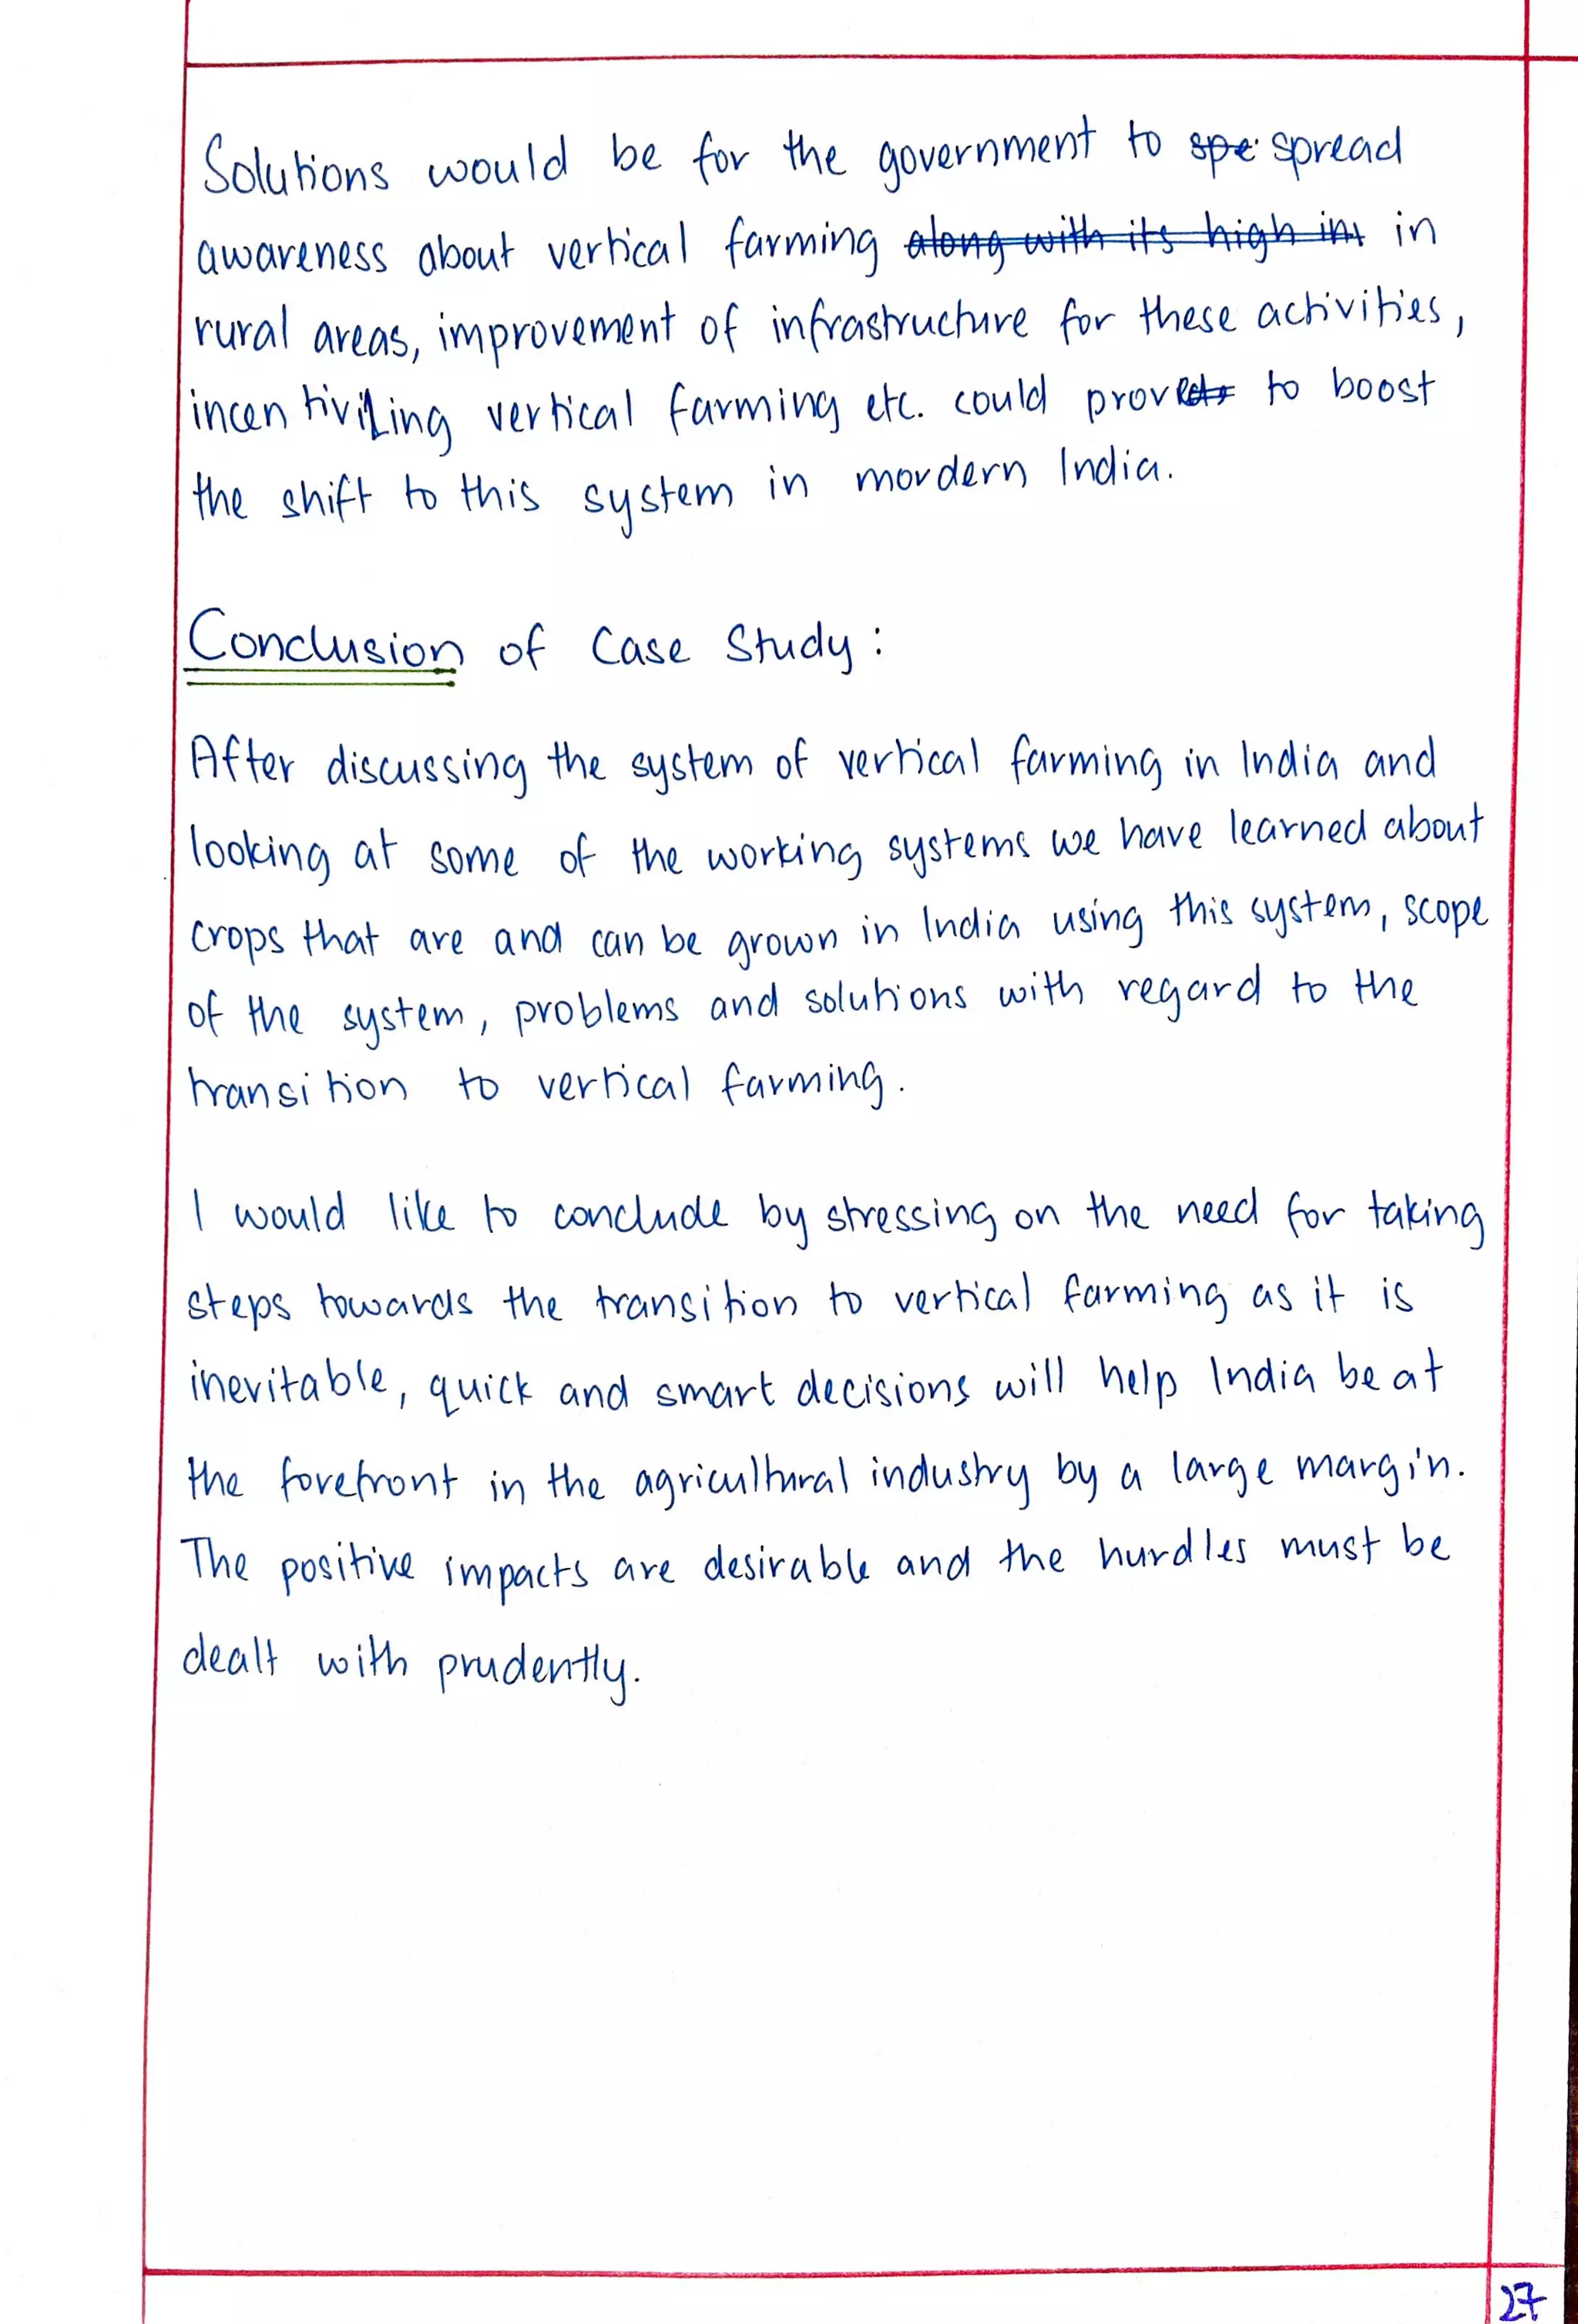 Solutions would be for the government to spe spread
awareness about vertical farming along with its high int in
rural areas, improvement of infrastructure for these activities,
incentivizing vertical farming etc. could prove to boost
the shift to this system in mordern India.
Conclusion of Case Study:
After discussing the system of vertical farming in India and
looking at some of the working systems we have learned about
crops that are and can be grown in India using this system, scope
of the system, problems and solutions with regard to the
transition to vertical farming.
I would like to conclude by stressing on the need for taking
steps towards the transition to vertical farming as it is
inevitable, quick and smart decisions will help India be at
the forefront in the agricultural industry by a large margin.
The positive impacts are desirable and the hurdles must be
dealt with prudently.
27